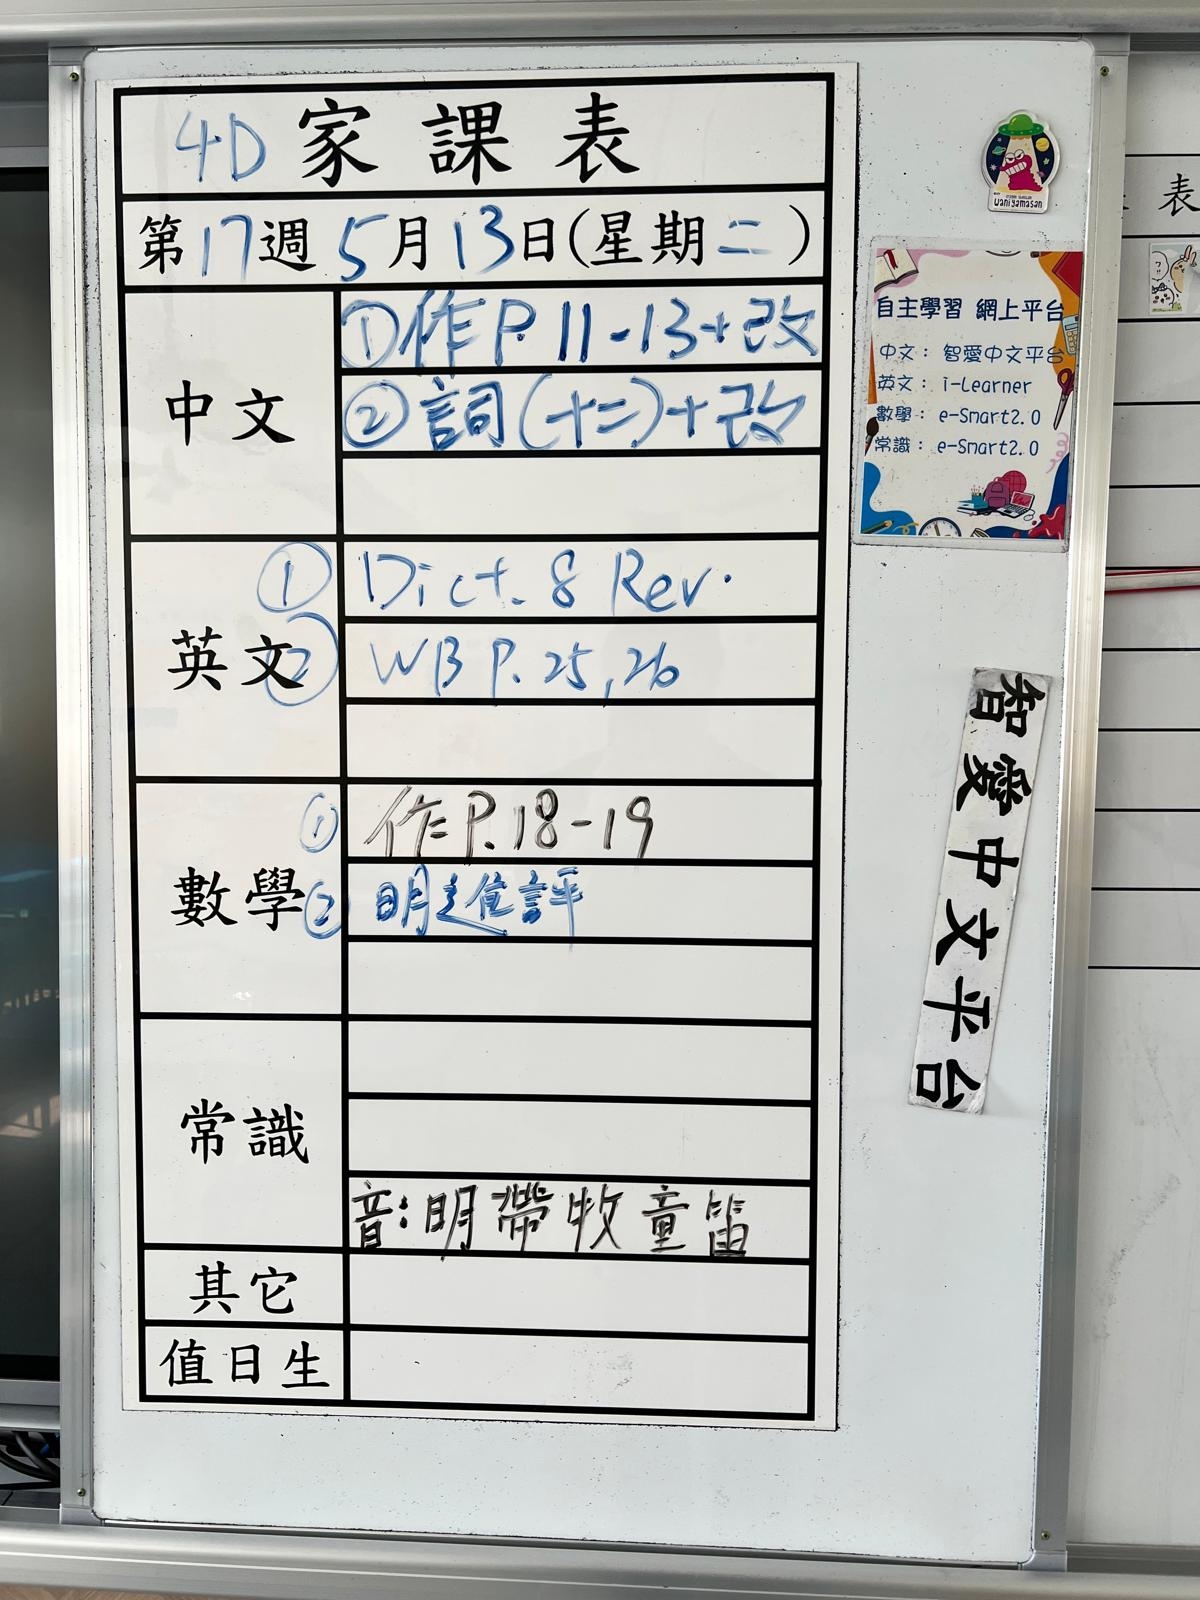 4D 家課表
第17週5月13日(星期二)
中文
①作P.11-13+改
②詞(十二)+改
英文
① Dict. 8 Rev.
② WB P.25,26
數學
① 作P.18-19
② 明進評
常識
音:明帶牧童笛
其它
值日生
uaniyamasan
自主學習 網上平台
中文：智愛中文平台
英文：i-Learner
數學：e-Smart2.0
常識：e-Smart2.0
智愛中文平台
表